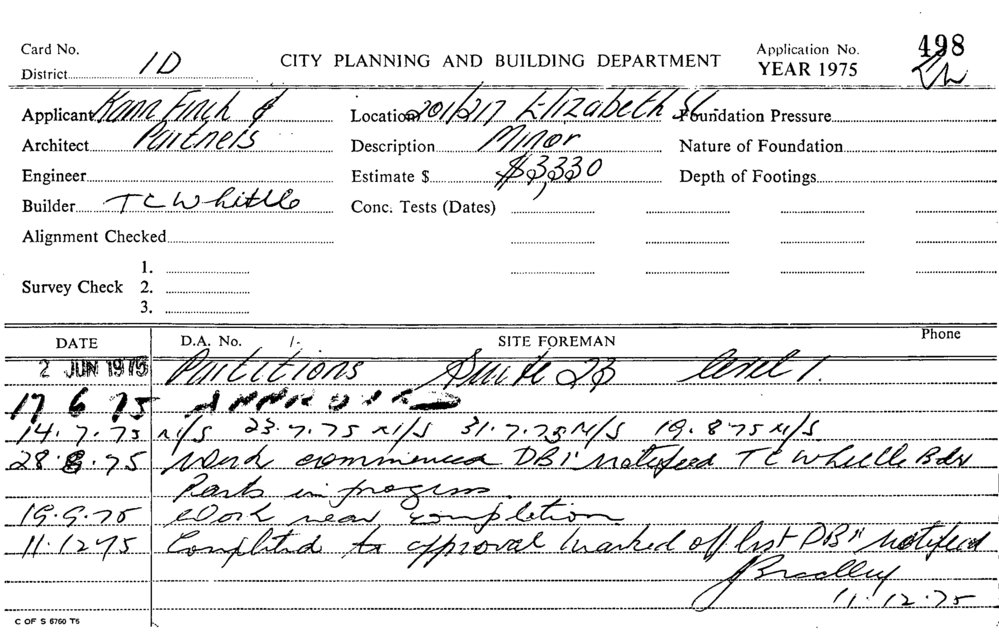 Card No.
District 1D
CITY PLANNING AND BUILDING DEPARTMENT
Application No. 498
YEAR 1975
Applicant Kann Finch &
Location 201/217 Elizabeth St
Foundation Pressure
Architect Partners
Description Minor
Nature of Foundation
Engineer
Estimate $ $3,330
Depth of Footings
Builder T C Whittle
Conc. Tests (Dates)
Alignment Checked
Survey Check
1.
2.
3.
DATE
D.A. No.
SITE FOREMAN
Phone
2 JUN 1975 Partitions Suite 23 level 1.
17 6 75 APPROVED
14.7.75 N/S 23.7.75 N/S 31.7.75 N/S 19.8.75 N/S
28.8.75 Work commenced DBI notifeed T C Whittle Bdr
Parts in progress
19.9.75 Work near completion
11.12 75 Completed to approval marked off list DBI notifeed
J Bradley
11.12.75
C OF S 6760 T5